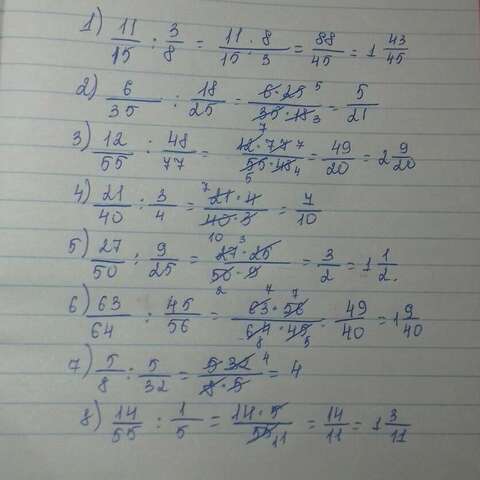 1) 11/15 : 3/8 = 11·8/15·3 = 88/45 = 1 43/45
2) 6/35 : 18/25 = 6·25 5/35·18 3 = 5/21
3) 12/55 : 48/77 = 12·77 7/55·48 4 = 49/20 = 2 9/20
4) 21/40 : 3/4 = 21·4/40·3 = 7/10
5) 27/50 : 9/25 = 27·25/50·9 = 3/2 = 1 1/2.
6) 63/64 : 45/56 = 63·56/64·45 = 49/40 = 1 9/40
7) 5/8 : 5/32 = 5·32 4/8·5 = 4
8) 14/55 : 1/5 = 14·5/55 11 = 14/11 = 1 3/11